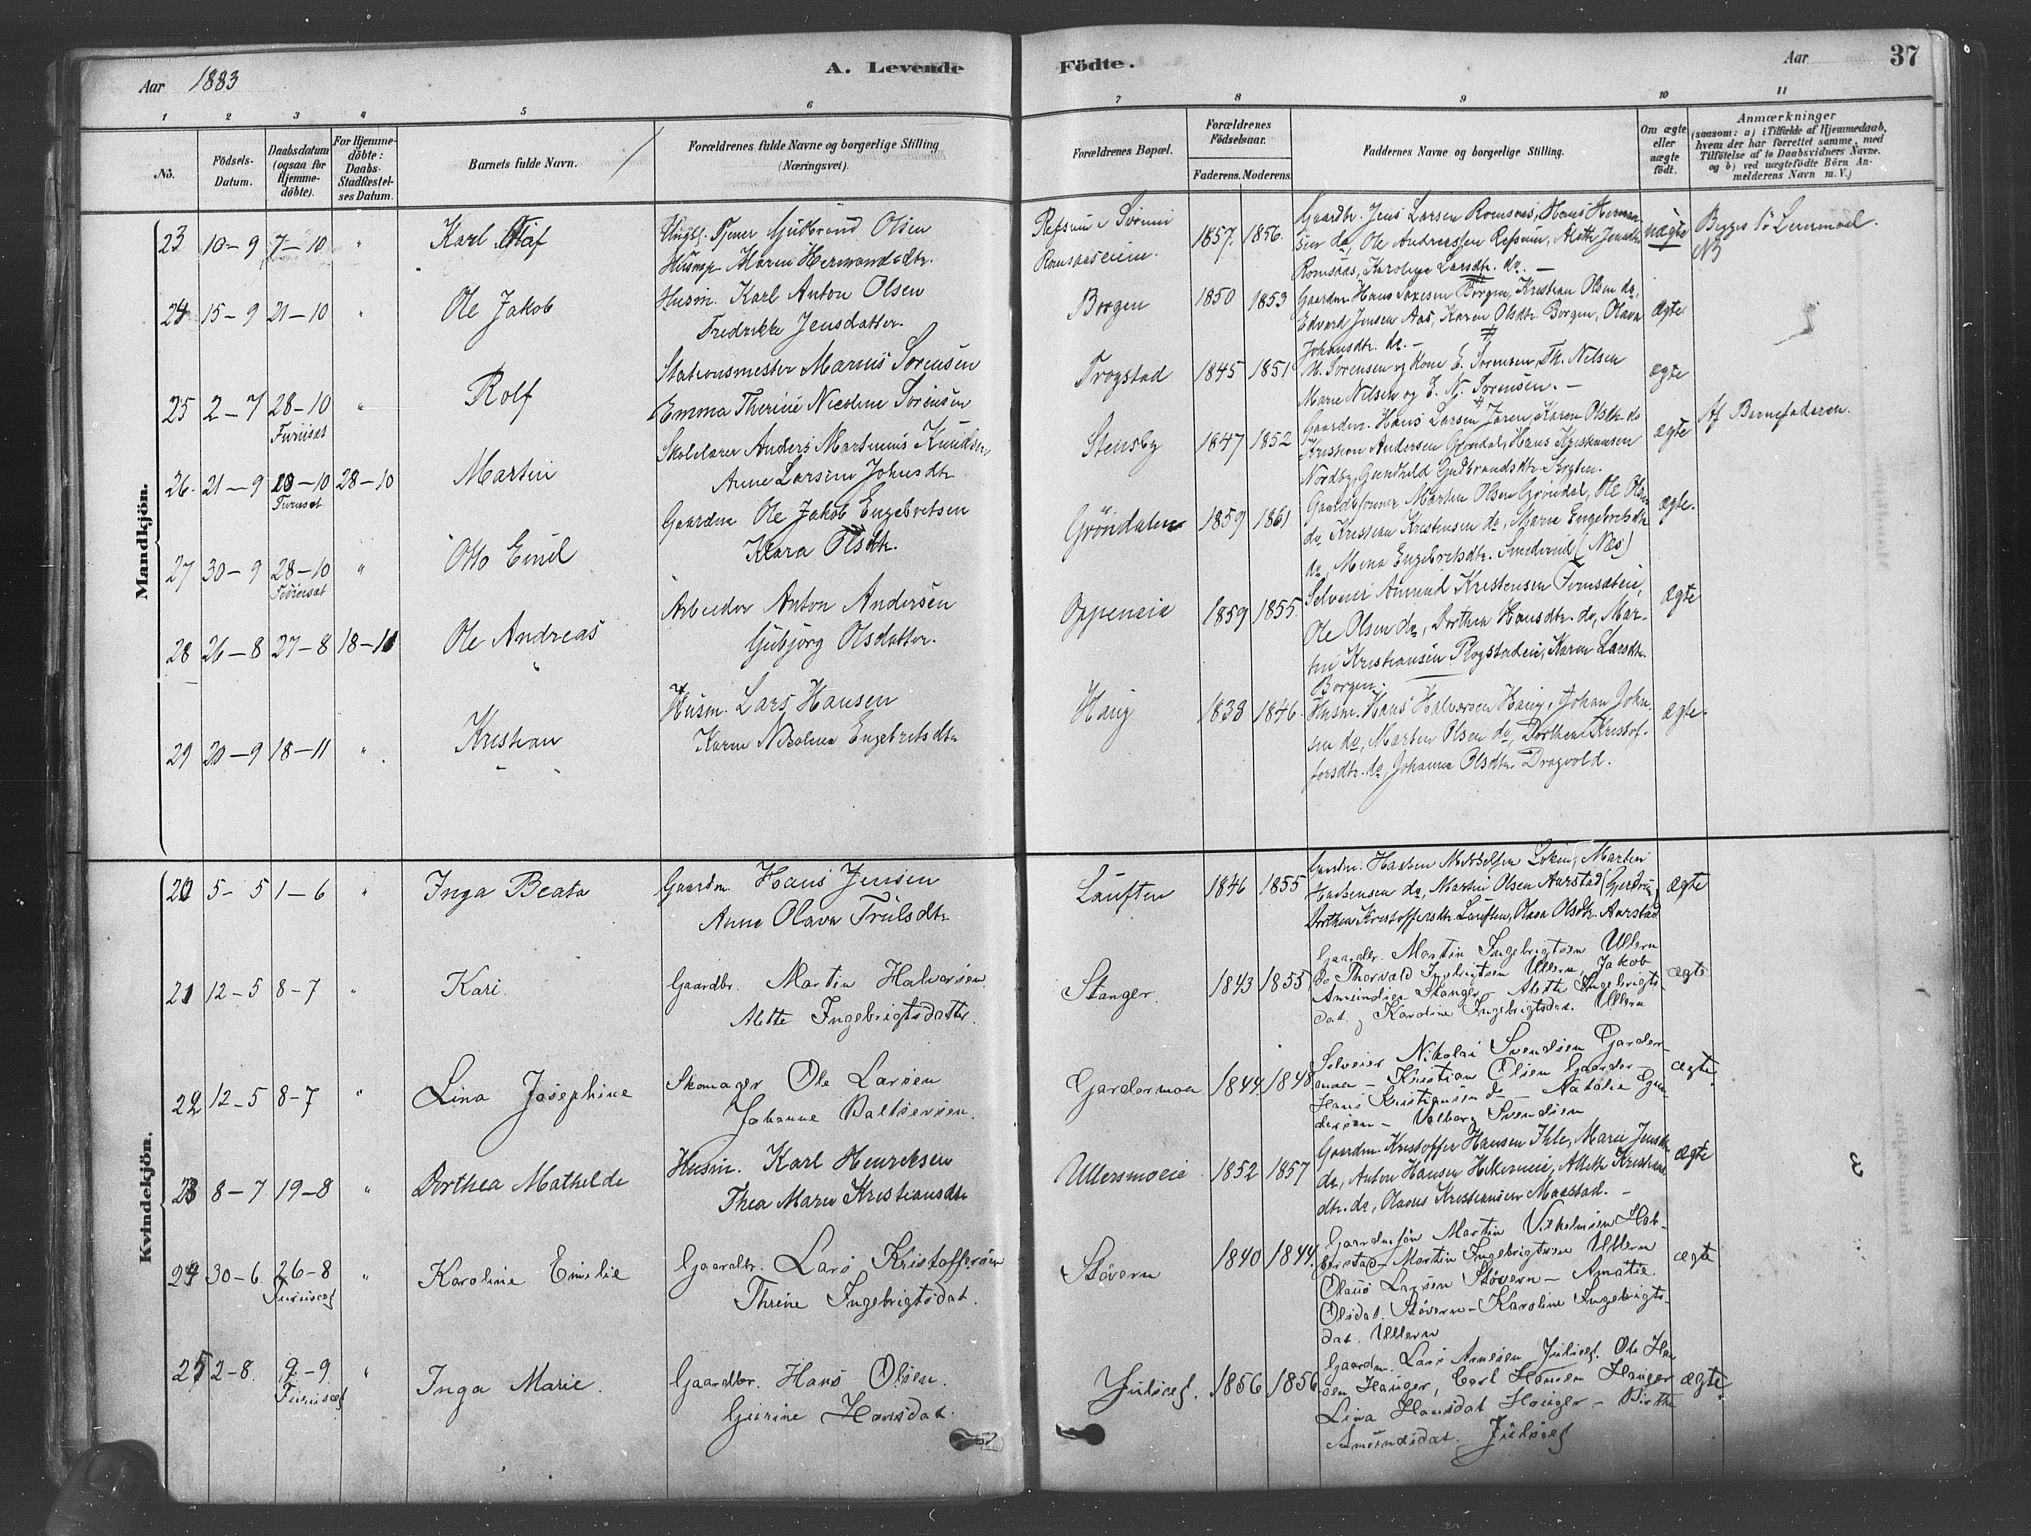 Aar 1883
A. Levende
Födte.
Aar
37
1 2 3 4 5 6 7 8 9 10 11
No.
Födsels-
Datum.
Daabsdatum
(ogsaa for
Hjemme-
döbte).
For Hjemme-
döbte:
Daabs-
Stadfæstel-
ses Datum.
Barnets fulde Navn.
Forældrenes fulde Navne og borgerlige Stilling
(Næringsvei).
Forældrenes Bopæl.
Forældrenes
Födselsaar.
Faderens. Moderens.
Faddernes Navne og borgerlige Stilling.
Om ægte
eller
uægte
födt.
Anmærkninger
(saasom: a) i Tilfælde af Hjemmedaab,
hvem der har forrettet samme, med
Tilföielse af to Daabsvidners Navne.
og b) ved uægtefödte Börn An-
melderens Navn m. V.)
Mandkjön.
23 10-9 7-10 " Karl Olaf
Ungk. Tjener Gulbrand Olsen
Husmp. Maren Hermandsdtr.
Refsum i Sörum
Romsaaseiem.
1857. 1856.
Gaardbr. Jens Larsen Romsaas, Hans Herman-
sen do, Ole Andreassen Refsum, Alette Jensdtr
Romsaas, Karoline Larsdtr. do. —
uægte
Begges 1ste Leiermaal.
NB
24 15-9 21-10 " Ole Jakob
Husm. Karl Anton Olsen
Fredrikke Jensdatter.
Borgen
1850 1853
Gaardm. Hans Saxesen Borgen, Kristian Olsen do,
Edvard Jensen Aas, Karen Olsdtr. Borgen, Olava
Johansdtr. do. —
ægte
25 2-7 28-10 " Rolf
Furuset
Stationsmester Marius Sörensen
Emma Therine Nicoline Sörensen
Trogstad
1845 1851
M. Sörensen og Kone E. Sörensen, Th. Nilsen
Marie Nilsen og E. N. Sörensen. —
ægte
26. 21-9 28-10 28-10 Martin
Furuset
Skolelærer Anders Martinius Knudsen
Anne Larsine Johnsdtr
Stensby
1847 1852
Gaardm. Hans Larsen Jaren, Karen Olsdtr. do
Kristian Andersen Gröndal, Hans Kristiansen
Nordby, Gunhild Gudbrandsdtr.
ægte
Af Barnefaderen.
27 30-9 28-10 " Otto Emil
Furuset
Gaardm Ole Jakob Engebretsen
Klara Olsdtr.
Gröndalen
1859 1861
Gaardbruger Martin Olsen Gröndal, Ole Olsen
do, Kristian Kristensen do, Marie Engebretsdtr
do, Mina Engebretsdtr. Smedsrud (Næs)
ægte.
28 26-8 27-8 18-11 Ole Andreas
Arbeider Anton Andersen
Gubjörg Olsdatter.
Oppeneie
1859 1855.
Selveier Amund Kristensen Furusæteie,
Ole Olsen do, Dorthea Hansdtr. do, Mar-
tin Kristiansen Rogstadeie, Karen Larsdtr.
Borgen.
ægte
29 20-9 18-11 " Kristian
Husm. Lars Hansen
Karen Nikoline Engebretsdtr
Haug
1838 1846.
Husm. Hans Halvorsen Haug, Johan Johan-
sen do, Martin Olsen do, Dorthea Kristof-
fersdtr. do, Johanne Olsdtr. Dragvold.
ægte.
Kvindekjön.
20 5-5 1-6 " Inga Beata
Gaardm. Hans Jensen
Anne Olava Trulsdtr.
Lauften
1846 1855
Gaardm. Hansen Løken, Martin
Hansen do, Martin Olsen Aurstad (Gjerdrum)
Dorthea Kristoffersdtr. Lauften, Olava Olsdtr. Aurstad
ægte
21 12-5 8-7 " Kari.
Gaardbr. Martin Halvorsen.
Alette Ingebrigtsdatter.
Stanger.
1843 1855
Gaardbr. Martin Ingebrigtsen Ullern
do Thorvald Ingebrigtsen Ullern, Jakob
Amundsen Stanger — Alette Ingebrigts-
dat. og Karoline Ingebrigtsdat. Ullern
ægte
22 12-5 8-7 " Lina Josephine
Skomager Ole Larsen
Johanne Baltsersen.
Gardermoen
1844 1848
Selveier Nikolai Svendsen Garder-
moen — Kristian Olsen Garder —
Hans Kristiansen do — Natalie Gun-
dersen — Valborg Svendsen
ægte.
23 8-7 19-8 " Dorthea Mathilde
Husm. Karl Henriksen
Thea Marie Kristiansdtr
Ullersmoeie
1852 1857
Gaardm. Kristoffer Hansen Ihle, Marie Jensdtr.
do, Anton Hansen Hekneneie, Alette Kristians-
dtr. do, Olavus Kristiansen Maastad. —
ægte
24 30-6. 26-8 " Karoline Emilie
Furuset
Gaardbr. Lars Kristoffersen
Thrine Ingebrigtsdat.
Stövern
1840 1844.
Gaardmsön Martin Vilhelmsen Hab-
berstad — Martin Ingebrigtsen Ullern
Olaus Larsen Stövern — Amalie
Olsdat. Stövern — Karoline Ingebrigts-
dat. Ullern
ægte
25 12-8. 9-9 " Inga Marie.
Furuset
Gaardbr. Hans Olsen.
Gurine Hansdat.
Julset.
1856 1856
Gaardm. Lars Arnesen Julset. Ole Han-
sen Hauger, Carl Hansen Hauger
Lina Hansdat Hauger — Birthe
Amundsdat. Julset
ægte.